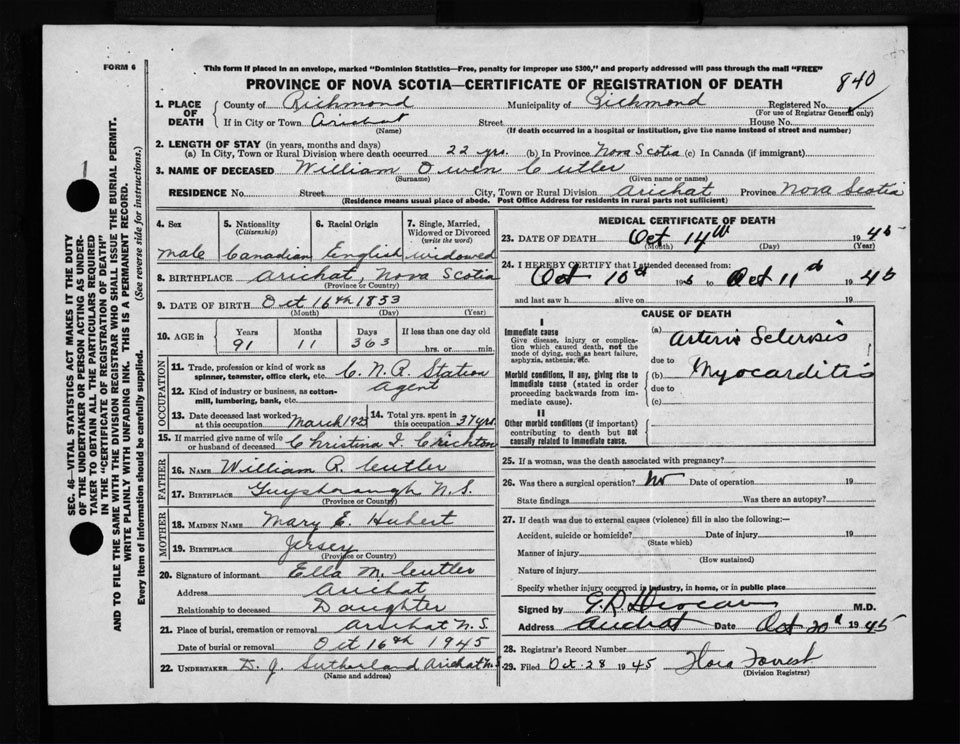 FORM 6
This form if placed in an envelope, marked "Dominion Statistics—Free, penalty for improper use $300," and properly addressed will pass through the mail "FREE"
PROVINCE OF NOVA SCOTIA—CERTIFICATE OF REGISTRATION OF DEATH
840
1. PLACE OF DEATH
County of Richmond Municipality of Richmond Registered No.
(For use of Registrar General only)
If in City or Town Arichat Street House No.
(Name) (If death occurred in a hospital or institution, give the name instead of street and number)
2. LENGTH OF STAY (in years, months and days)
(a) In City, Town or Rural Division where death occurred 22 yrs. (b) In Province Nova Scotia (c) In Canada (if immigrant)
3. NAME OF DECEASED William Owen Cutler
(Surname) (Given name or names)
RESIDENCE No. Street City, Town or Rural Division Arichat Province Nova Scotia
(Residence means usual place of abode. Post Office Address for residents in rural parts not sufficient)
4. Sex
male
5. Nationality
(Citizenship)
Canadian
6. Racial Origin
English
7. Single, Married, Widowed or Divorced
(write the word)
widowed
8. BIRTHPLACE Arichat, Nova Scotia
(Province or Country)
9. DATE OF BIRTH Oct 16th 1853
(Month) (Day) (Year)
10. AGE in Years Months Days If less than one day old
91 11 363 hrs. or min.
OCCUPATION
11. Trade, profession or kind of work as spinner, teamster, office clerk, etc. C.N.R. Station
Agent
12. Kind of industry or business, as cotton-mill, lumbering, bank, etc.
13. Date deceased last worked at this occupation March 1923
14. Total yrs. spent in this occupation 37 yrs.
15. If married give name of wife or husband of deceased Christina I. Crichton
FATHER
16. NAME William R. Cutler
17. BIRTHPLACE Guysborough N.S.
(Province or Country)
MOTHER
18. MAIDEN NAME Mary E. Hubert
19. BIRTHPLACE Jersey
(Province or Country)
20. Signature of informant Ella M. Cutler
Address Arichat
Relationship to deceased Daughter
21. Place of burial, cremation or removal Arichat N.S.
Date of burial or removal Oct 16th 1945
22. UNDERTAKER D. J. Sutherland Arichat N.S.
(Name and address)
MEDICAL CERTIFICATE OF DEATH
23. DATE OF DEATH Oct 14th 1945
(Month) (Day) (Year)
24. I HEREBY CERTIFY that I attended deceased from:
Oct 10th 1945 to Oct 11th 1945
and last saw h alive on 19
CAUSE OF DEATH
I
Immediate cause
Give disease, injury or complication which caused death, not the mode of dying, such as heart failure, asphyxia, asthenia, etc.
(a) Arterio Sclerosis
due to
Morbid conditions, if any, giving rise to immediate cause (stated in order proceeding backwards from immediate cause).
(b) Myocarditis
due to
(c)
II
Other morbid conditions (if important) contributing to death but not causally related to immediate cause.
25. If a woman, was the death associated with pregnancy?
26. Was there a surgical operation? No Date of operation 19
State findings Was there an autopsy?
27. If death was due to external causes (violence) fill in also the following:—
Accident, suicide or homicide? Date of injury 19
(State which)
Manner of injury
(How sustained)
Nature of injury
Specify whether injury occurred in industry, in home, or in public place
Signed by M.D.
Address Arichat Date Oct 20th 1945
28. Registrar's Record Number
29. Filed Oct. 28 1945 Flora Forrest
(Division Registrar)
SEC. 46—VITAL STATISTICS ACT MAKES IT THE DUTY
OF THE UNDERTAKER OR PERSON ACTING AS UNDERTAKER TO OBTAIN ALL THE PARTICULARS REQUIRED
IN THE "CERTIFICATE OF REGISTRATION OF DEATH"
AND TO FILE THE SAME WITH THE DIVISION REGISTRAR WHO SHALL ISSUE THE BURIAL PERMIT.
WRITE PLAINLY WITH UNFADING INK. THIS IS A PERMANENT RECORD.
Every item of information should be carefully supplied. (See reverse side for instructions.)